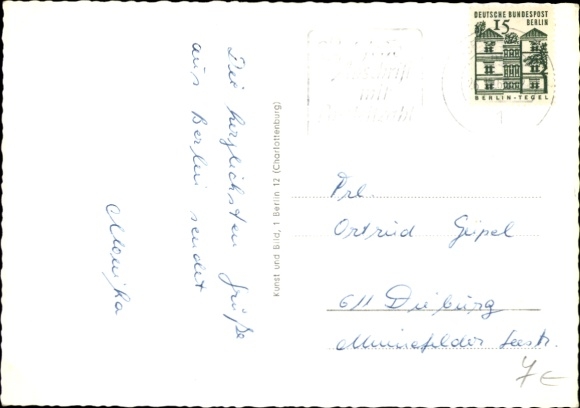 Die herzlichsten Grüße
aus Berlin sendet
Monika
Kunst und Bild, 1 Berlin 12 (Charlottenburg)
DEUTSCHE BUNDESPOST
BERLIN
15
BERLIN-TEGEL
mit
Frl.
Ortrud Göpel
611 Dieburg
Minnefelder Seestr.
7€